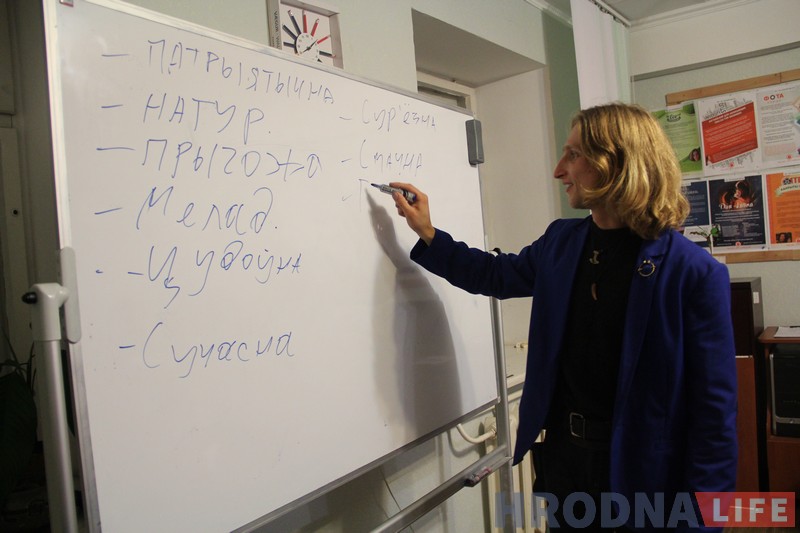 - ПАТРЫЯТЫЧНА
- НАТУР.
- ПРЫГОЖА
- Мелад.
- Цудоўна
- Сучасна
- Сур'ёзна
- Смачна
HRODNA LIFE